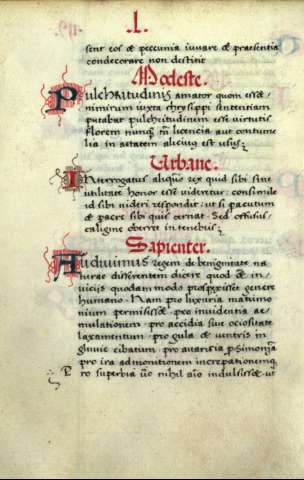 I.
sent eos & pecunia iuuare & præsentia
condecorare non destitit
Modeste.
Pulchritudinis amator quom esset
nimirum iuxta chrysippi sententiam
putabat pulchritudinem esse uirtutis
florem nunquã licencia aut contume
lia in ætatem alicuius est usus;
Urbane.
Interrogatus aliquo rex quid sibi sine
utilitate honor esse uideretur: consimile
id sibi uideri respondit: ut si pacutum
& pacre sibi quis cernat. Sed offusus
caligine oberret in tenebris;
Sapienter.
Audiuimus regem de benignitate na
turæ disserentem dicere quod & in
uicijs quodam modo prospexisset generi
humano. Nam pro luxuria matrimo
nium permisisse. pro inuidentia æ
mulationem. pro accidia siue ociositate
laxamentum. pro gula & uentris in
gluuie cibatum. pro auaricia parsimoniã
pro ira admonitionem increpationemq;
Pro superbia uero nihil aio indulsisse. ut